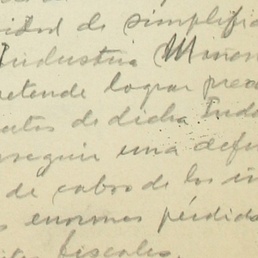 idad de simplific
Industria Miner
retende lograr prec
de dicha Indu
seguir una defin
de cobro de los im
s enormes pérdida
fiscales.